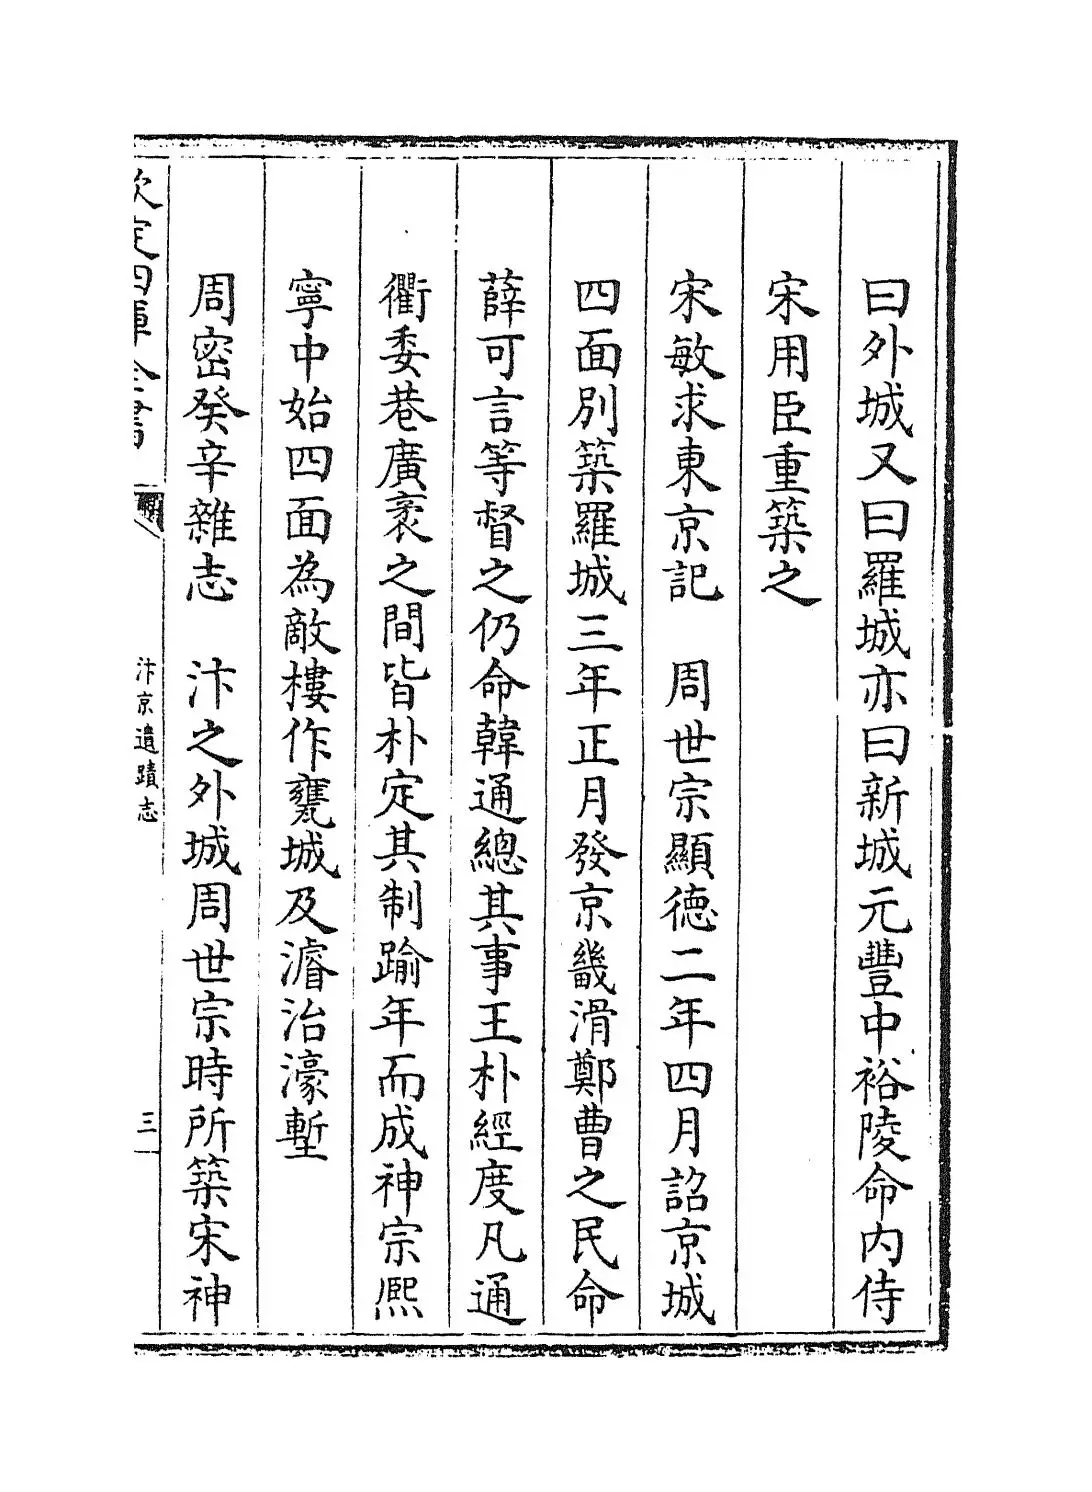 曰外城又曰羅城亦曰新城元豐中裕陵命内侍
宋用臣重築之
宋敏求東京記　周世宗顯德二年四月詔京城
四面別築羅城三年正月發京畿滑鄭曹之民命
薛可言等督之仍命韓通總其事王朴經度凡通
衢委巷廣袤之間皆朴定其制踰年而成神宗熈
寧中始四面為敵樓作甕城及濬治濠塹
周密癸辛雜志　汴之外城周世宗時所築宋神
欽定四庫全書
汴京遺蹟志
三